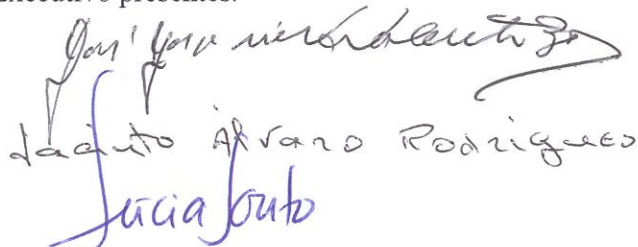 executivo presentes.
José
Jacinto Álvaro Rodrigues
Lúcia Souto